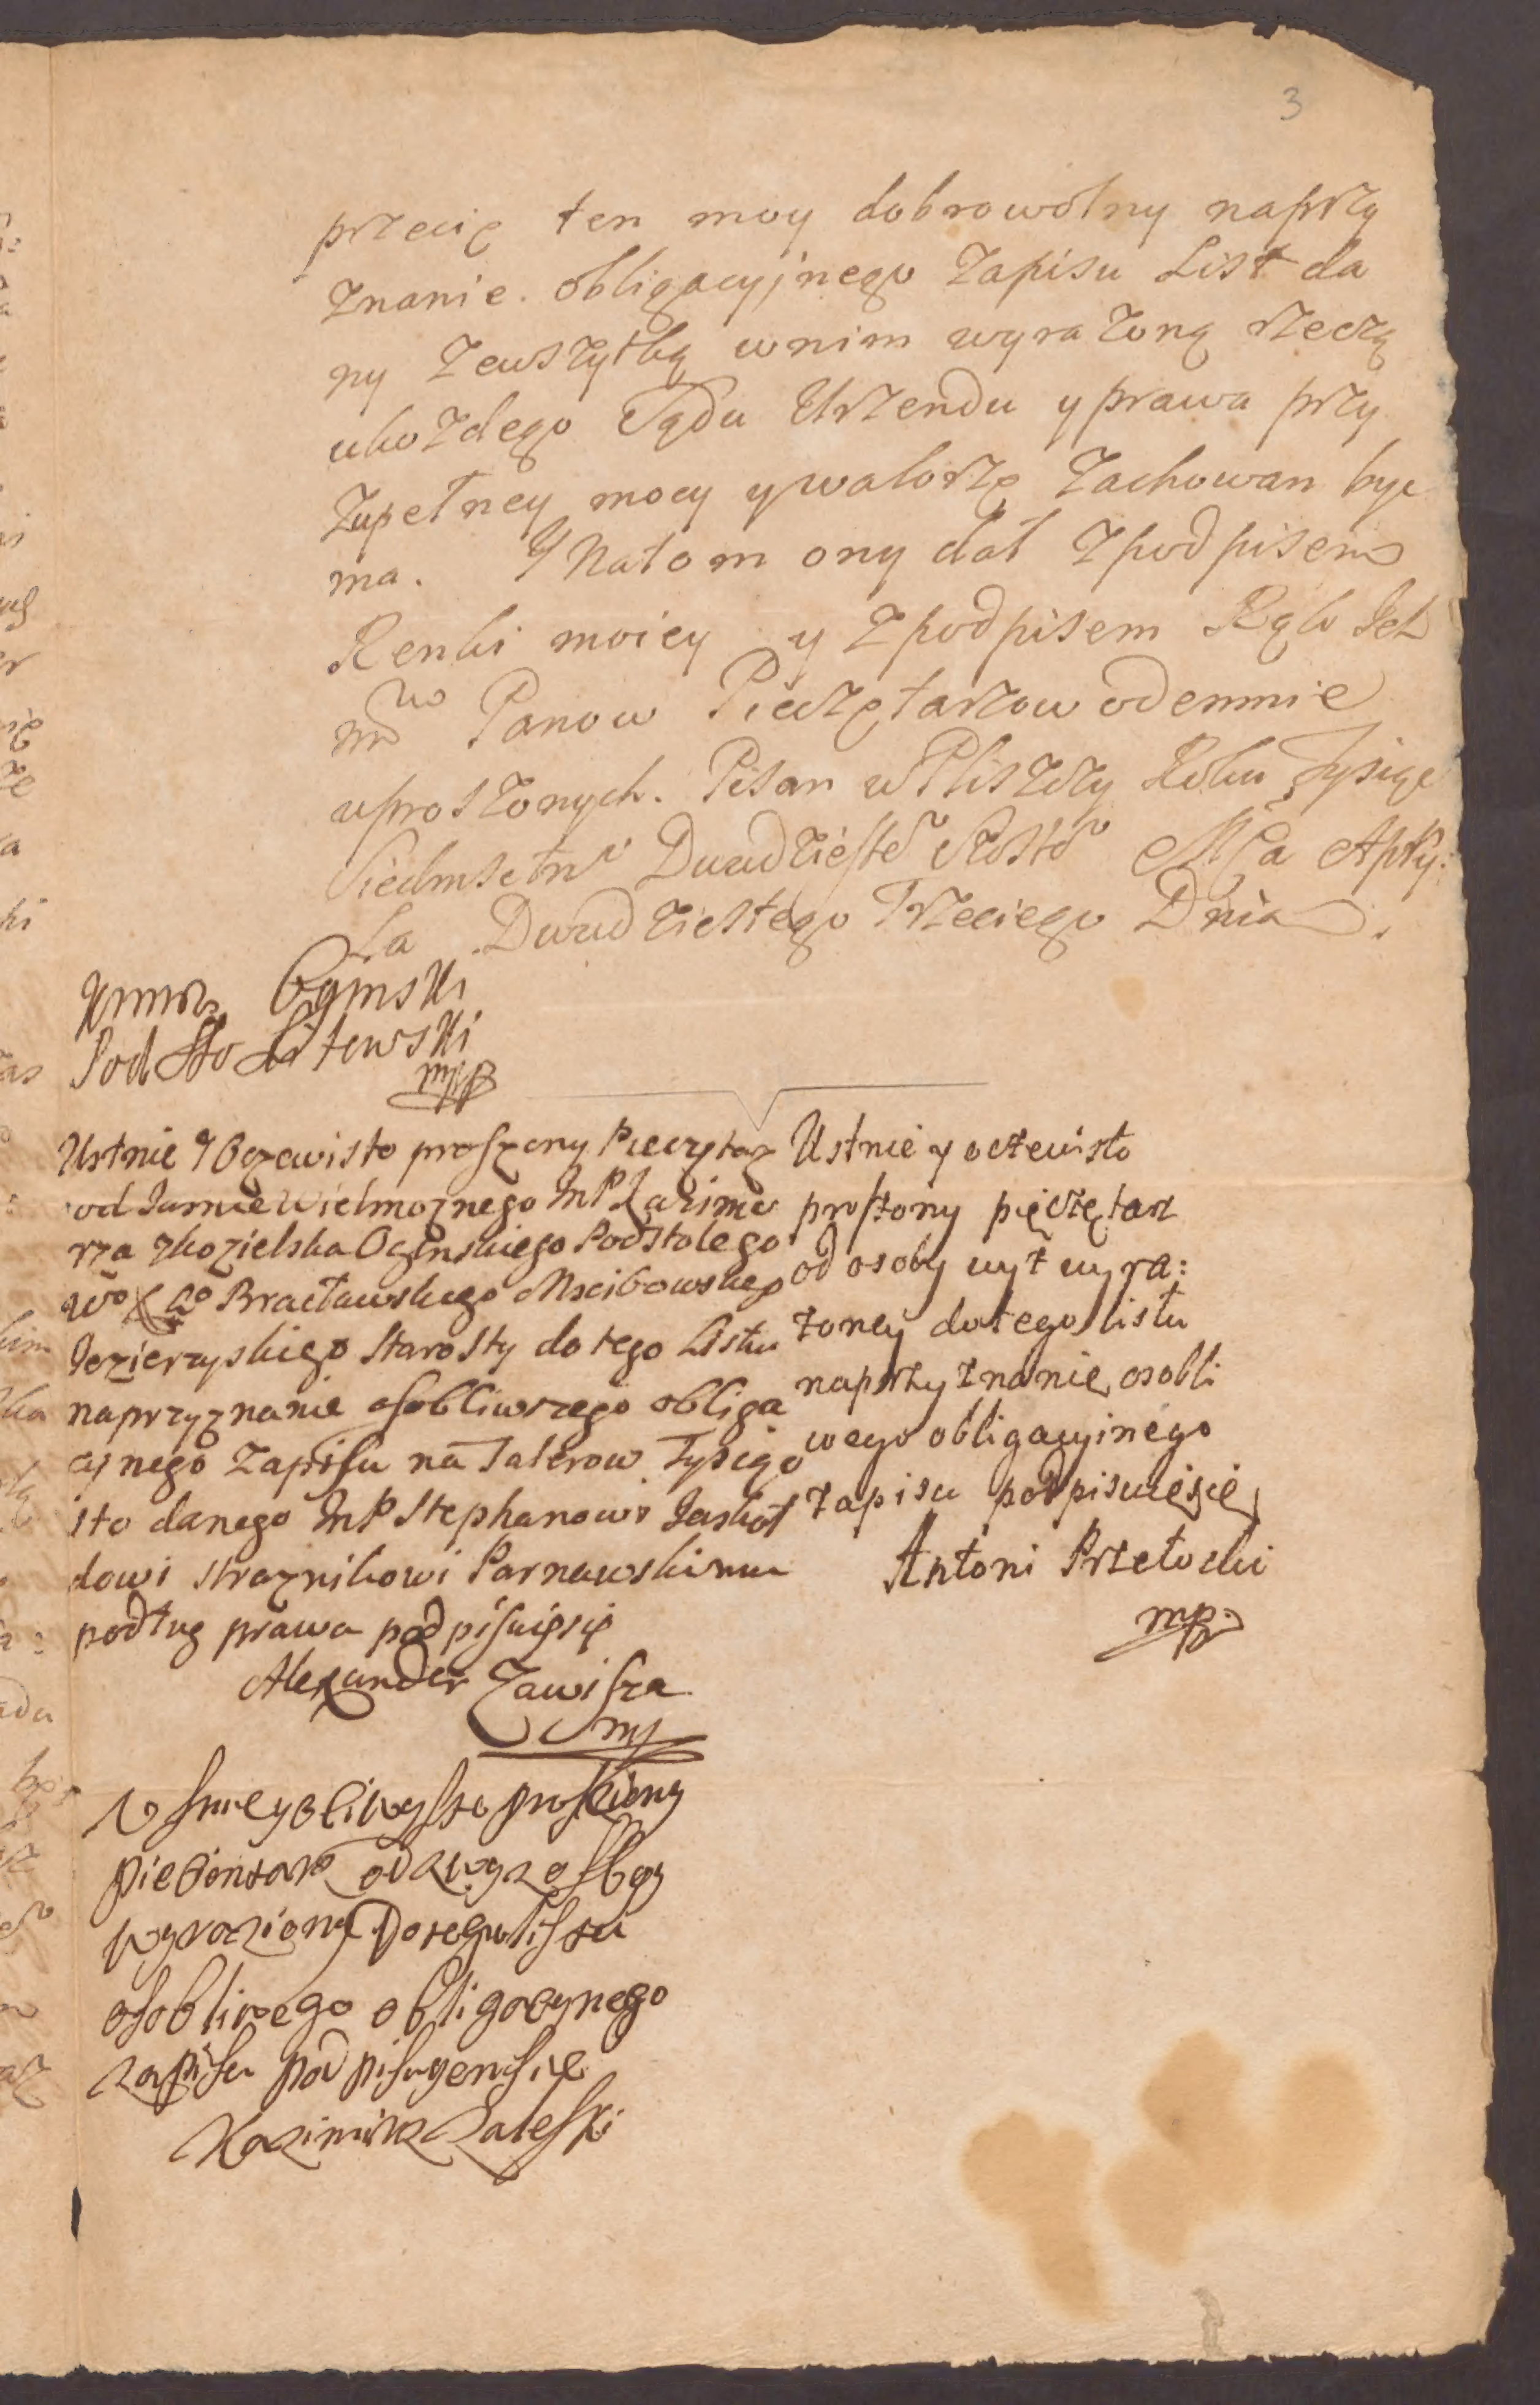 3
przecię ten moy dobrowolny naprzy
znanie obligacyjnego Zapisu List da
ny zewszytką wnim wyrazoną rzeczą
ukozdego Sądu Urzendu y prawa przy
zupełney mocy y walorze zachowan byc
ma. Y Natom ony dał z podpisem
Renki moiey y z podpisem Rąk Ich
mw Panow Pieczętarzow odemnie
uproszonych. Pisan w Pliszczy Roku Tysiąc
Siedmsetn Dwudzieste szoste Mca Apry:
la Dwudziestego Trzeciego Dnia.
Ogmski
Podsto Litewski
mp
Ustnie y Oczewisto proszony Pieczętaz
od Jasnie Wielmoznego ImP Kazimie
rza zkozielska Oginskiego Podstolego
wo Xo Bracławskiego Mscibowskiego
Jezierzyskiego Starosty do tego Listu
naprzyznanie osobliwszego obliga
cyjnego Zapisu na Talerow Tysiąc
sto danego ImP Stephanowi Jaskoł
dowi straznikowi Parnawskiemu
podług prawa podpisuięsię
Alexander Zawisza
mp
Ustnie y oczewisto
proszony pięczętarz
od osoby wyż wyra:
zoney dotego listu
naprzyznanie osobli
wego obligacyinego
zapisu podpisuiesie
Antoni Przetocki
mp.
Usnie y oliwysto prosziony
pieczontarz od zwyz osoby
wyrazioney Do tego listu
osobliwego obligacynego
zapisu pod pisuyensie
Kazimirz Zaleski